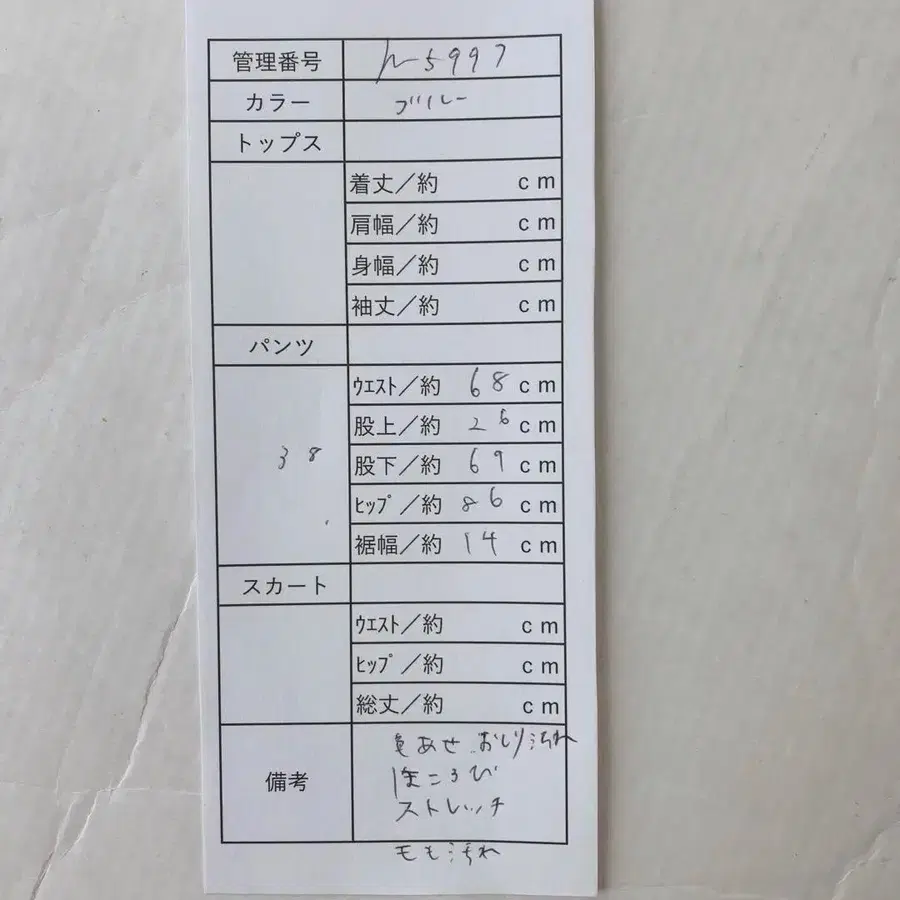 管理番号 h-5997
カラー ブルー
トップス
着丈／約 cm
肩幅／約 cm
身幅／約 cm
袖丈／約 cm
パンツ
38
ウエスト／約 68 cm
股上／約 26 cm
股下／約 69 cm
ヒップ／約 86 cm
裾幅／約 14 cm
スカート
ウエスト／約 cm
ヒップ／約 cm
総丈／約 cm
備考
色あせ おしり汚れ
ほころび
ストレッチ
もも汚れ